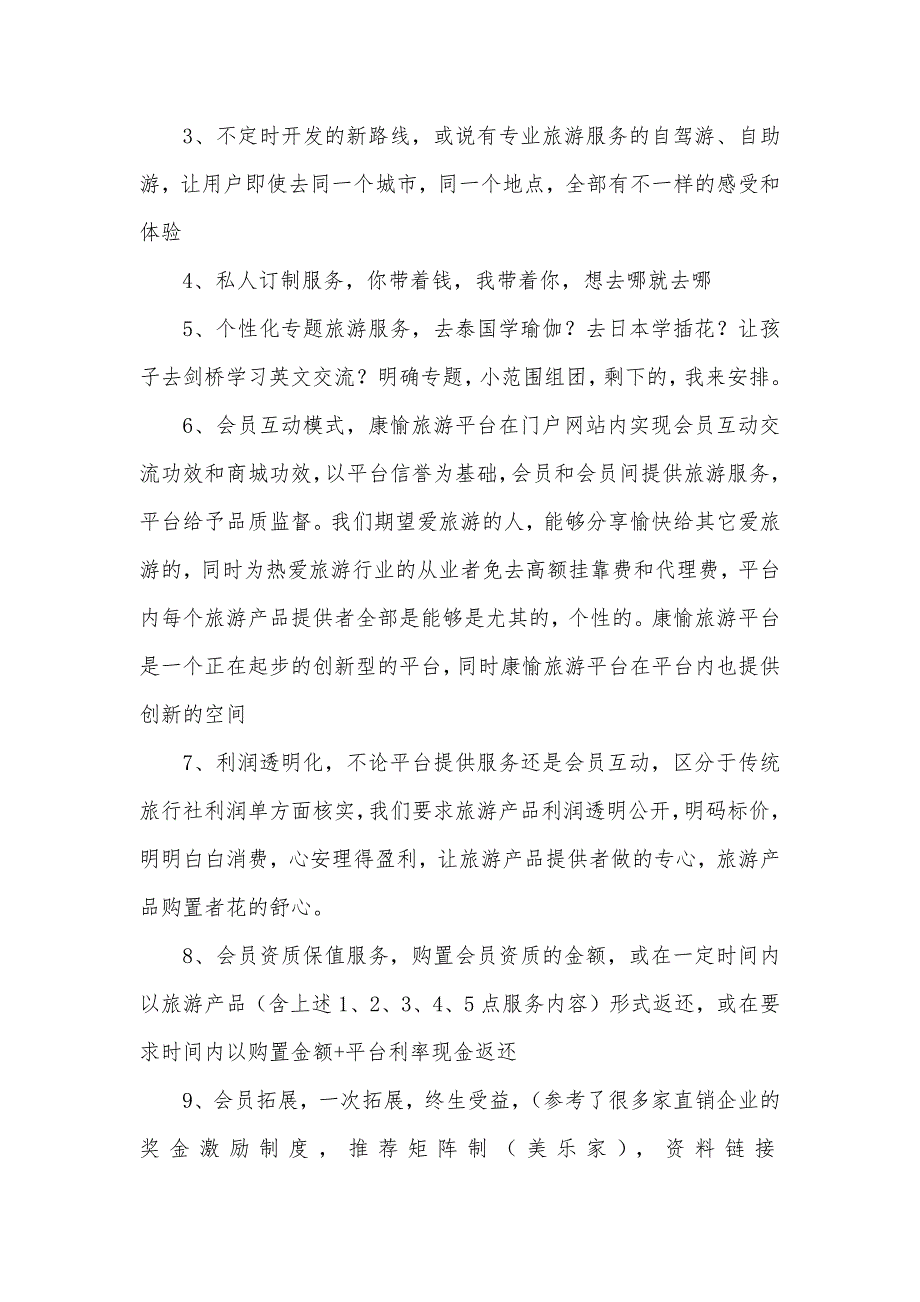 3、不定时开发的新路线，或说有专业旅游服务的自驾游、自助
游，让用户即使去同一个城市，同一个地点，全部有不一样的感受和
体验
4、私人订制服务，你带着钱，我带着你，想去哪就去哪
5、个性化专题旅游服务，去泰国学瑜伽？去日本学插花？让孩
子去剑桥学习英文交流？明确专题，小范围组团，剩下的，我来安排。
6、会员互动模式，康愉旅游平台在门户网站内实现会员互动交
流功效和商城功效，以平台信誉为基础，会员和会员间提供旅游服务，
平台给予品质监督。我们期望爱旅游的人，能够分享愉快给其它爱旅
游的，同时为热爱旅游行业的从业者免去高额挂靠费和代理费，平台
内每个旅游产品提供者全部是能够是尤其的，个性的。康愉旅游平台
是一个正在起步的创新型的平台，同时康愉旅游平台在平台内也提供
创新的空间
7、利润透明化，不论平台提供服务还是会员互动，区分于传统
旅行社利润单方面核实，我们要求旅游产品利润透明公开，明码标价，
明明白白消费，心安理得盈利，让旅游产品提供者做的专心，旅游产
品购置者花的舒心。
8、会员资质保值服务，购置会员资质的金额，或在一定时间内
以旅游产品（含上述1、2、3、4、5点服务内容）形式返还，或在要
求时间内以购置金额+平台利率现金返还
9、会员拓展，一次拓展，终生受益，（参考了很多家直销企业的
奖金激励制度，推荐矩阵制（美乐家），资料链接